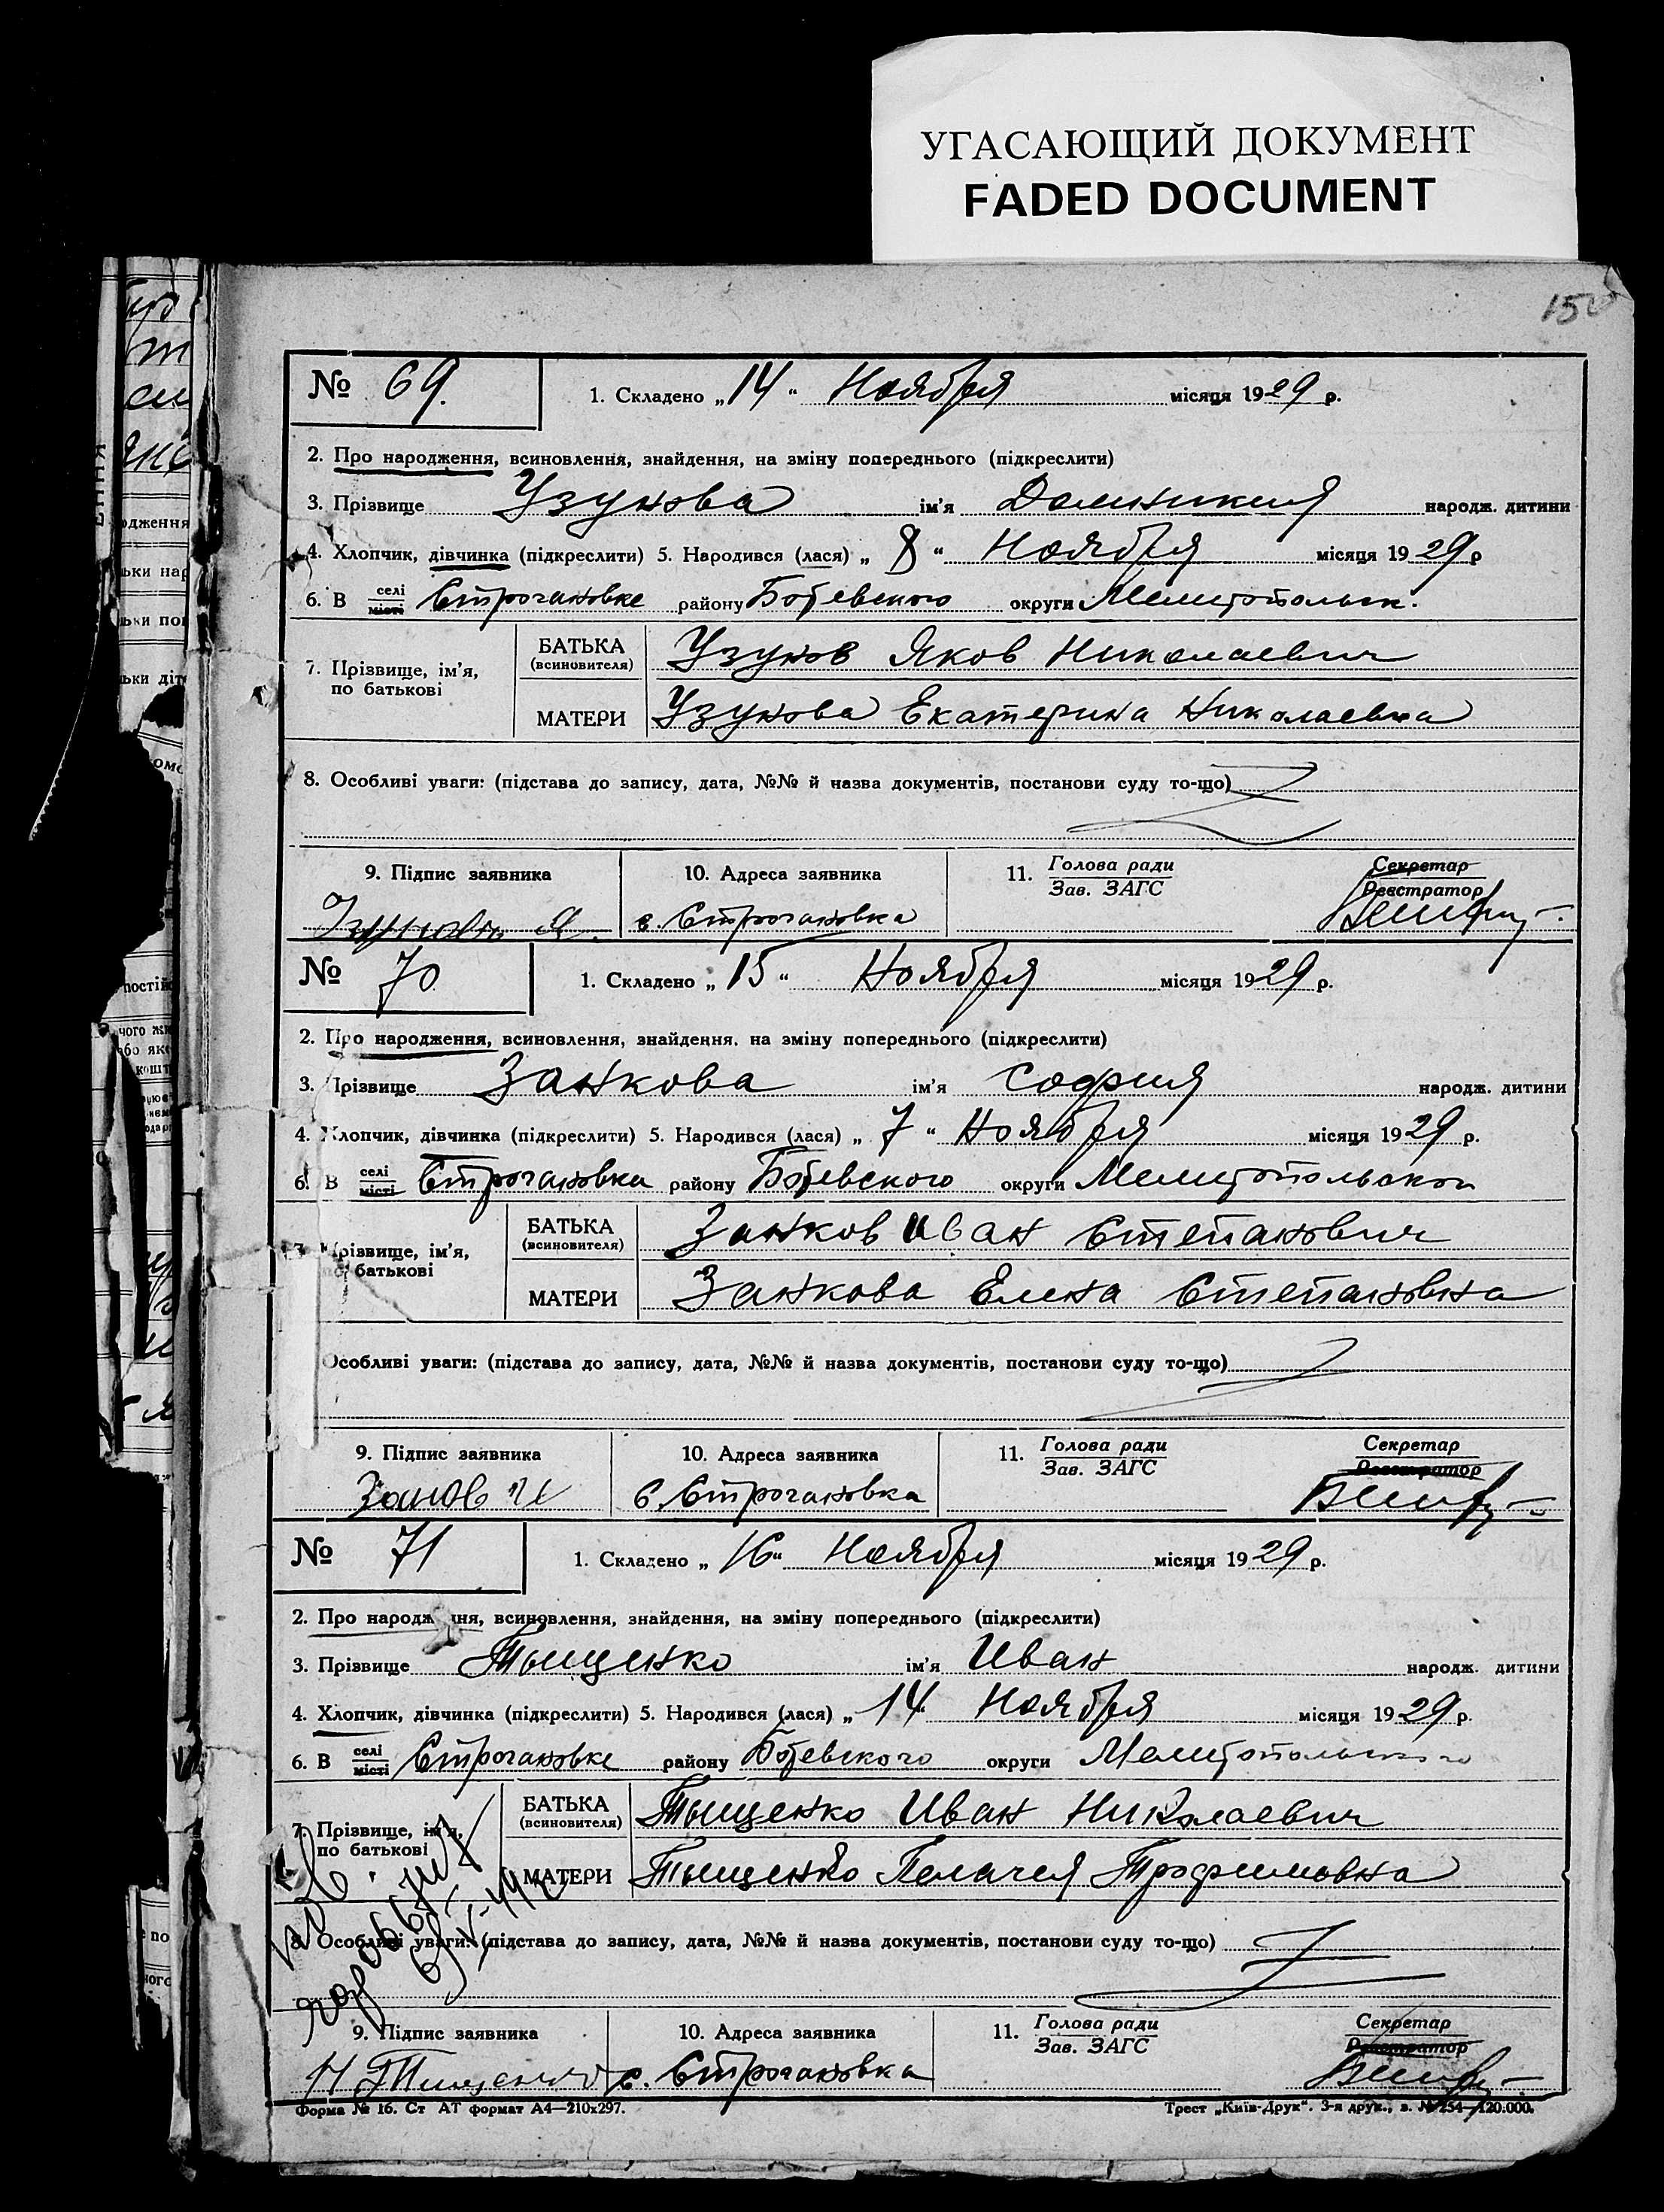 УГАСАЮЩИЙ ДОКУМЕНТ
FADED DOCUMENT
№ 69. 1. Складено „14“ Ноября місяця 1929 р.
2. Про народження, всиновлення, знайдення, на зміну попереднього (підкреслити)
3. Прізвище Узунова ім'я Домникия народж. дитини
4. Хлопчик, дівчинка (підкреслити) 5. Народився (лася) „8“ Ноября місяця 1929 р
6. В селі місті Строгановке району Ботевского округи Мелитопольск.
7. Прізвище, ім'я, по батькові БАТЬКА (всиновителя) Узунов Яков Николаевич
МАТЕРИ Узунова Екатерина Николаевна
8. Особливі уваги: (підстава до запису, дата, №№ й назва документів, постанови суду то-що)
9. Підпис заявника 10. Адреса заявника 11. Голова ради Зав. ЗАГС Секретар Реєстратор
Узунов Я. с. Строгановка
№ 70 1. Складено „15“ Ноября місяця 1929 р.
2. Про народження, всиновлення, знайдення, на зміну попереднього (підкреслити)
3. Прізвище Занкова ім'я София народж. дитини
4. Хлопчик, дівчинка (підкреслити) 5. Народився (лася) „7“ Ноября місяця 1929 р.
6. В селі місті Строгановка району Ботевского округи Мелитопольской
7. Прізвище, ім'я, по батькові БАТЬКА (всиновителя) Занков Иван Степанович
МАТЕРИ Занкова Елена Степановна
Особливі уваги: (підстава до запису, дата, №№ й назва документів, постанови суду то-що)
9. Підпис заявника 10. Адреса заявника 11. Голова ради Зав. ЗАГС Секретар Реєстратор
с. Строгановка
№ 71 1. Складено „16“ Ноября місяця 1929 р.
2. Про народження, всиновлення, знайдення, на зміну попереднього (підкреслити)
3. Прізвище Тыщенко ім'я Иван народж. дитини
4. Хлопчик, дівчинка (підкреслити) 5. Народився (лася) „14“ Ноября місяця 1929 р.
6. В селі місті Строгановке району Ботевского округи Мелитопольского
7. Прізвище, ім'я, по батькові БАТЬКА (всиновителя) Тыщенко Иван Николаевич
МАТЕРИ Тыщенко Пелагея Трофимовна
8. Особливі уваги: (підстава до запису, дата, №№ й назва документів, постанови суду то-що)
9. Підпис заявника 10. Адреса заявника 11. Голова ради Зав. ЗАГС Секретар Реєстратор
с. Строгановка
Форма № 16. Ст АТ формат А4—210х297. Трест „Київ-Друк“. 3-я друк., з. № 254—120.000.